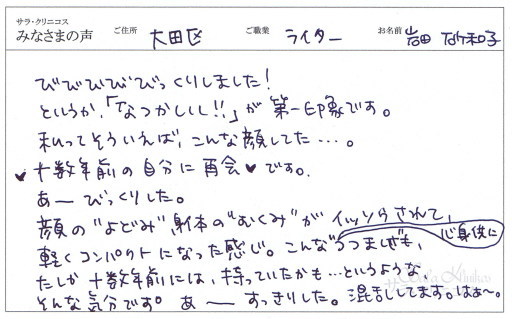 サラ・クリニコス
みなさまの声 ご住所 大田区 ご職業 ライター お名前 岩田 砂和子
びびびびびっくりしました！
というか、「なつかしい！！」が第一印象です。
私ってそういえば、こんな顔してた…。
♥十数年前の自分に再会♥です。
あ〜びっくりした。
顔の"よどみ"身体の"むくみ"がイッソウされて、
心身供に
軽くコンパクトになった感じ。こんな"うつまぜも、
たしか十数年前には、持っていたかも…というような、
そんな気分です。あ〜すっきりした。混乱してます。はぁ〜。